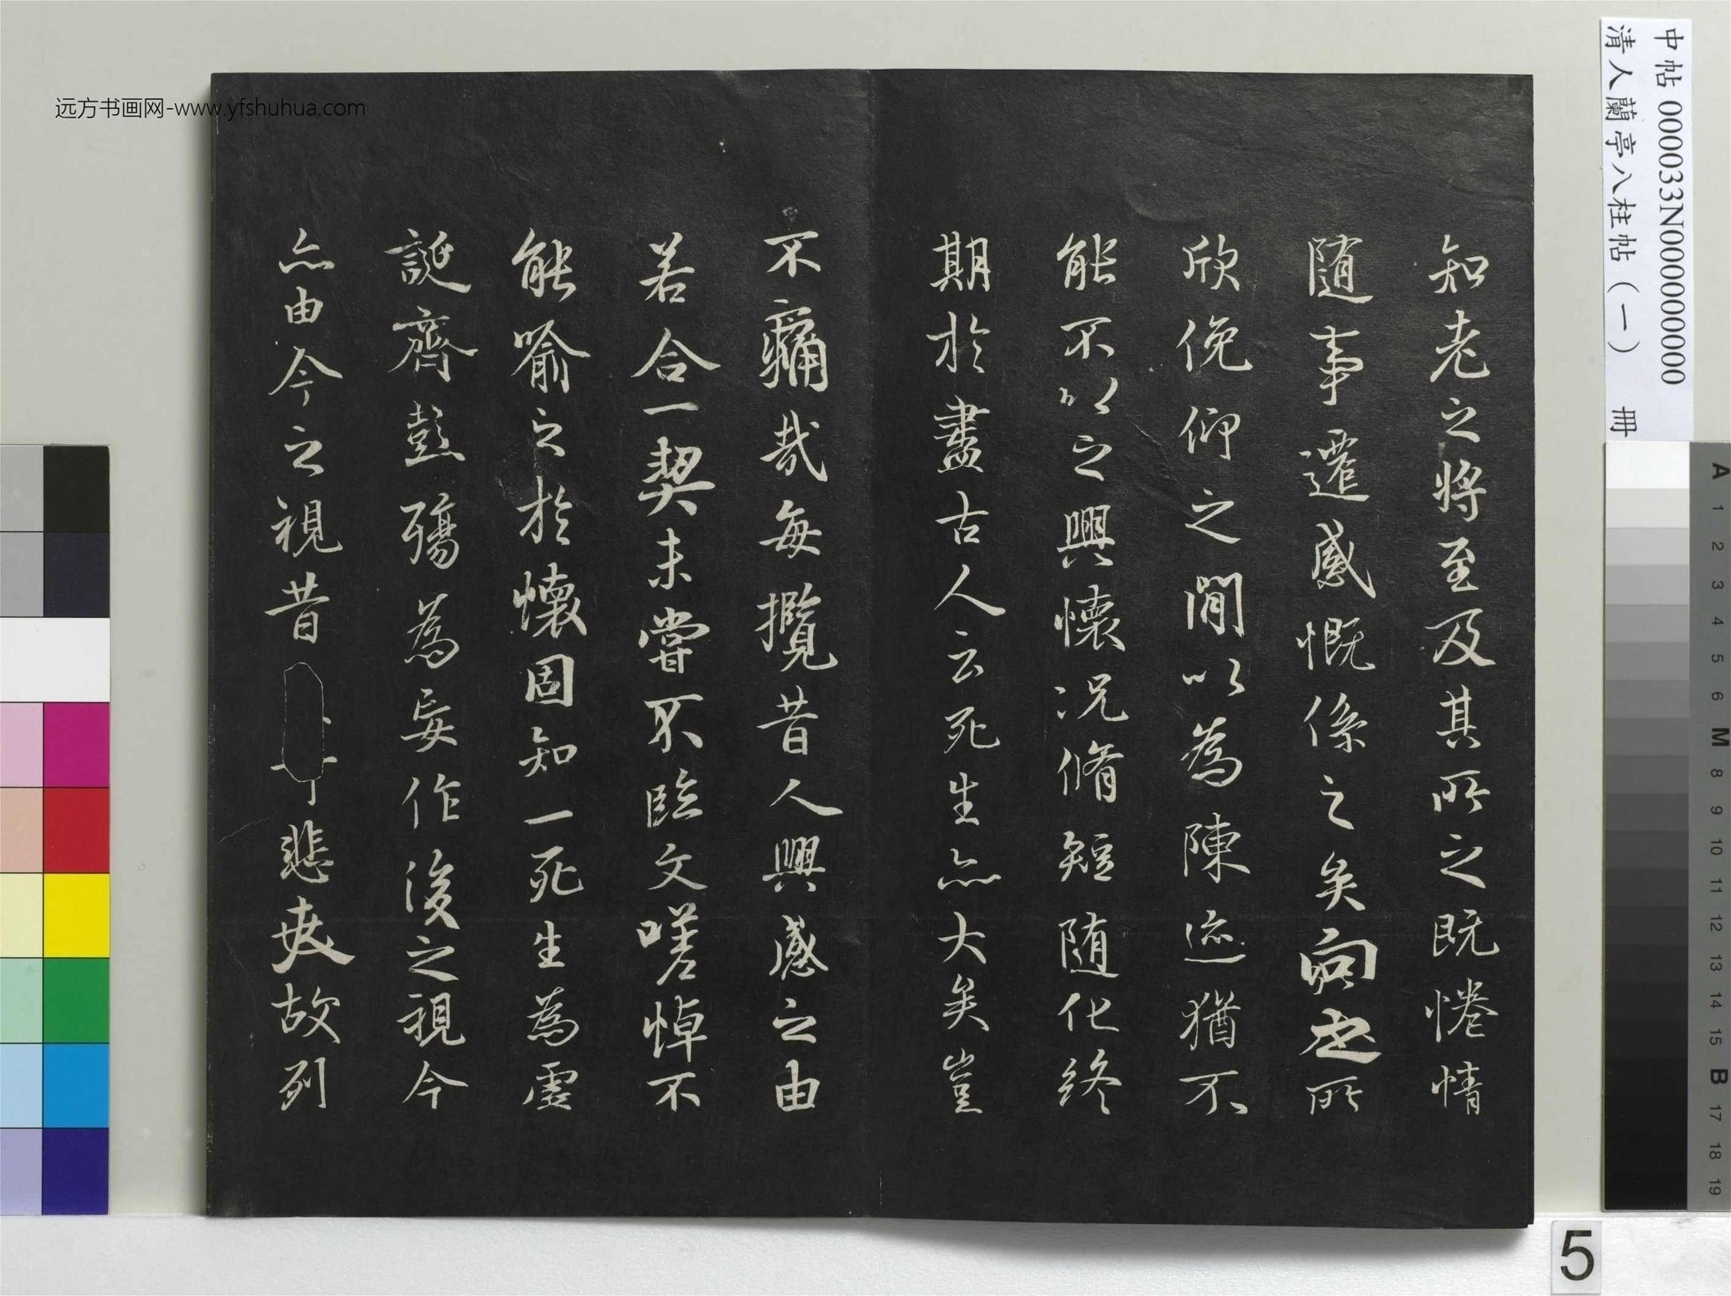 知老之將至及其所之既惓情
随事遷感慨係之矣向之所
欣俛仰之閒以為陳迹猶不
能不以之興懷況脩短随化終
期於盡古人云死生亦大矣豈
不痛哉每攬昔人興感之由
若合一契未甞不臨文嗟悼不
能喻之於懷固知一死生為虛
誕齊彭殤為妄作後之視今
亦由今之視昔 悲夫故列
远方书画网-www.yfshuhua.com
中帖 000033N000000000
清人蘭亭八柱帖(一) 冊
A 1 2 3 4 5 6 M 8 9 10 11 12 13 14 15 B 17 18 19
5